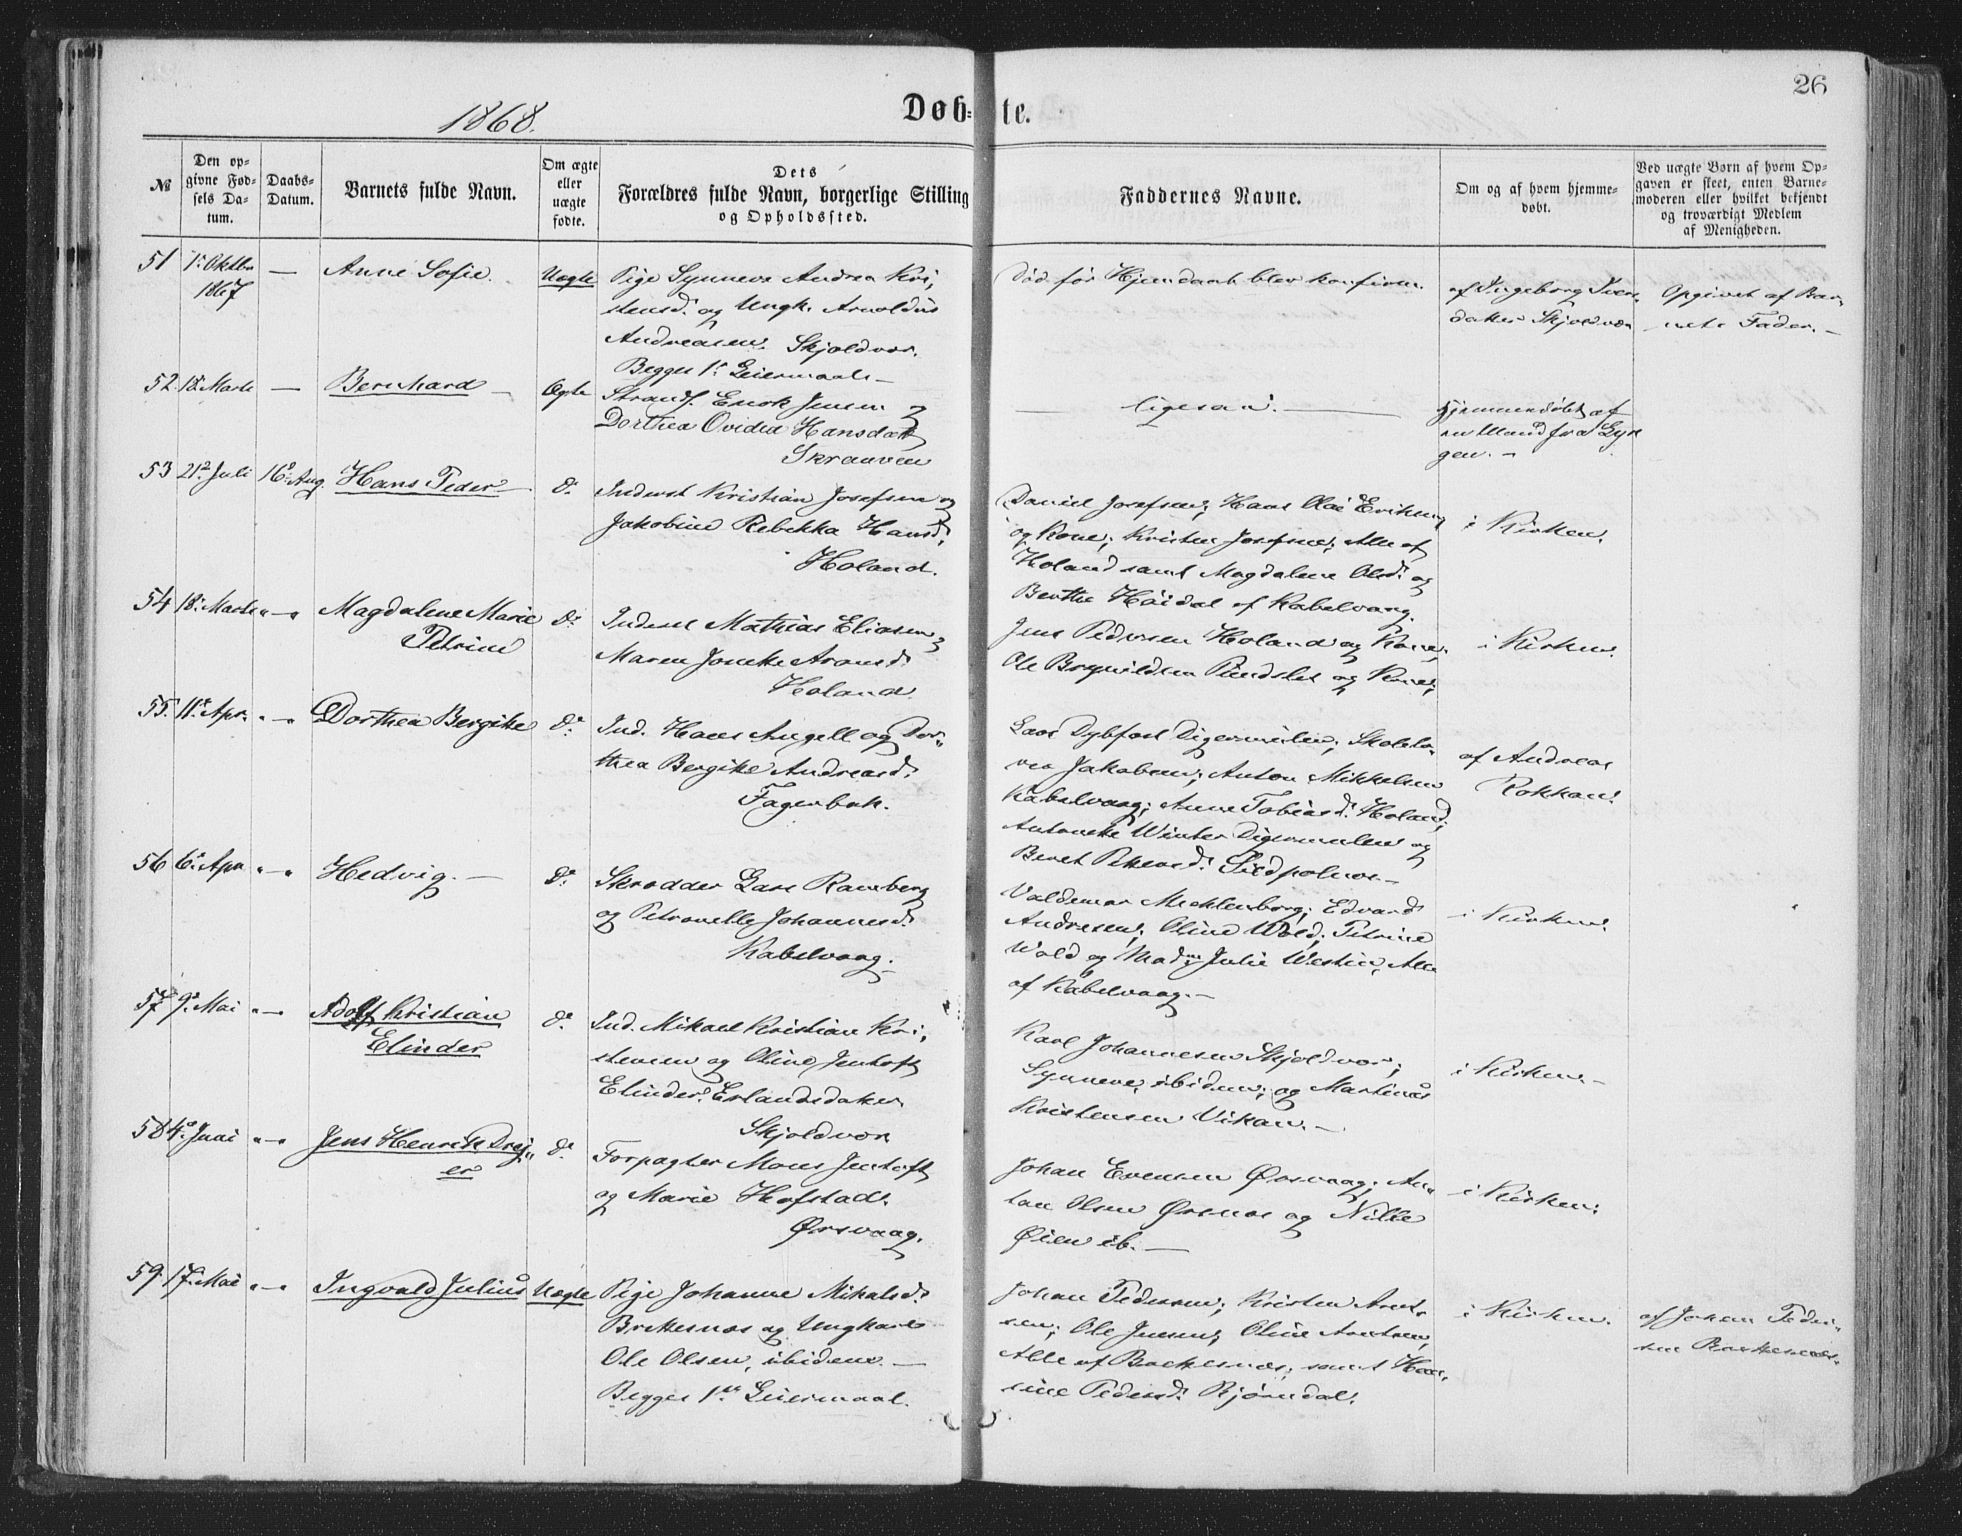 26
1868.
Døb- te.
№
Den op-
givne Fød-
sels Da-
tum.
Daabs-
Datum.
Barnets fulde Navn.
Om ægte
eller
uægte
fødte.
Dets
Forældres fulde Navn, borgerlige Stilling
og Opholdssted.
Faddernes Navne.
Om og af hvem hjemme-
døbt.
Ved uægte Børn af hvem Op-
gaven er skeet, enten Barne-
moderen eller hvilket bekjendt
og troværdigt Medlem
af Menigheden.
51 1ste Oktbr
1867
—
Anne Sofie.
Uægte
Pige Synneva Andrea Kri-
stensd. og Ungk. Arnoldus
Andreasen. Skjoldvær.
Begges 1ste Leiermaal.—
Død før Hjemdaab blev konfirm.
af Ingeborg
Skjoldvær
Opgivet af Bar-
nets Fader.—
52. 18 Marts
—
Bernhard —
Ægte
Strands. Enok Jensen og
Dorthea Ovidia Hansdatt
Skraaven
— ligesaa. —
Hjemmedøbt af
en Mand fra
gen.—
53 21de Juli
16de Aug.
Hans Peder —
do.
Inderst Kristian Josefsen og
Jakobine Rebekka Hansd.
Holand.
Daniel Josefsen; Hans Olai Eriksen
og Kone; Kristen Josefsen; Alle af
Holand samt Magdalene Olsd. og
Berthe Høidal af Kabelvaag.
i Kirken.
54 18. Marts
"—"
Magdalene Marie
Petrine
do.
Inderst Mathias Eliasen og
Maren Joneke Aronsd.
Holand
Jens Pedersen Holand og Kone;
Ole Brynildsen Pundslet og Kone;
i Kirken.
55. 11te Apr.
"—"
Dorthea Bergike
do.
Ind. Hans Angell og Dor-
thea Bergike Andreasd.
Fagerbak.
Lars Dybfest Digermulen; Skolelæ-
rer Jakobsen; Anton Mikkelsen
Kabelvaag; Anne Tobiasd. Holand;
Antoneta Winter Digermulen og
Beret Pekersd. Sildpolnæs.—
af Andreas
Rokkan.
56 6te Apr
"—"
Hedvig. —
do.
Skrædder Lars Ramberg
og Petronelle Johannesd.
Kabelvaag.
Valdemar Mecklenborg; Edvard
Andresen; Oline Wold; Petrine
Wold og Madm Julie Westin, Alle
af Kabelvaag.—
i Kirken.
57 9de Mai
"—"
Adolf Kristian
Elinder
do.
Ind. Mikael Kristian Kri-
stensen og Oline Jentoft
Elinder Erlandsdaker
Skjoldvær
Karl Johannesen Skjoldvær;
Synneve ibidem; og Martinus
Kristensen Vikan.—
i Kirken.—
58 4de Juni
"—"
Jens Henrik Drej-
er
do.
Forpagter Mons Jentoft
og Marie Hofstad.
Ørsvaag.
Johan Evensen Ørsvaag; An-
ton Olsen Ørsnæs og Nille
Øien ib.—
i Kirken.
59. 17. Mai
"—"
Ingvald Julius
Uægte
Pige Johanne Mikalsd.
Brettesnæs og Ungkarl
Ole Olsen, ibidem.—
Begges 1ste Leiermaal.
Johan Pedersen; Kristen Arnt-
sen; Ole Jensen; Oline Arntsen,
Alle af samt Han-
sine Pedersd. Bjørndal.
i Kirken.
af Johan Peder-
sen